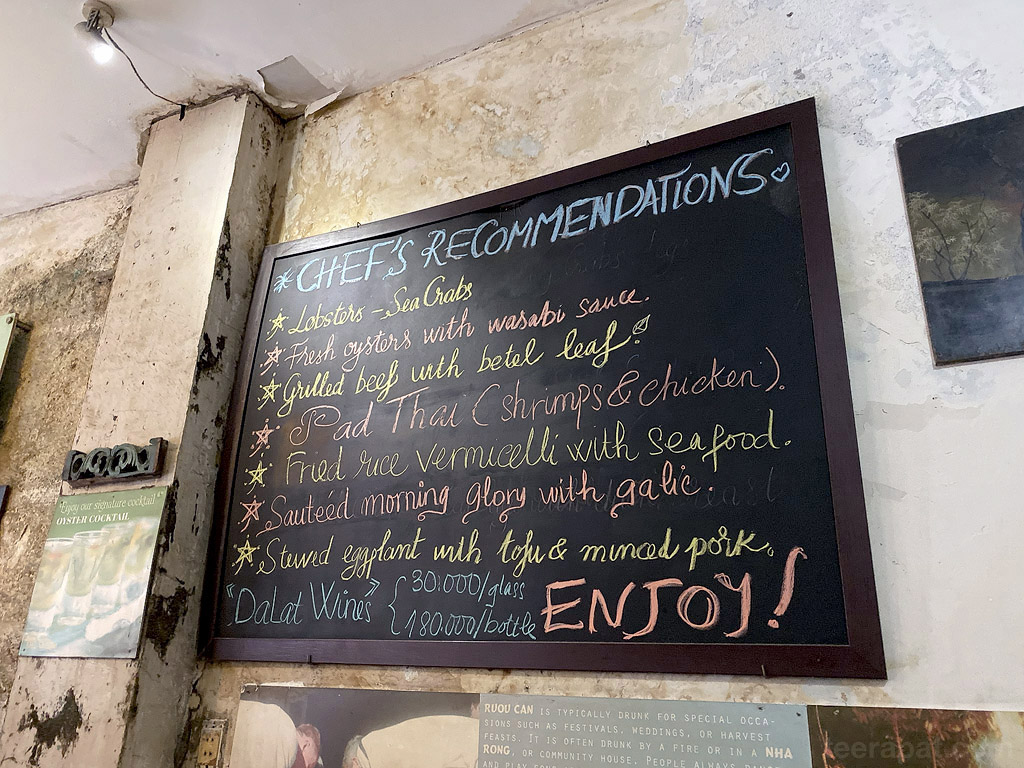 CHEF'S RECOMMENDATIONS
Lobsters - Sea Crabs
Fresh oysters with wasabi sauce.
Grilled beef with betel leaf.
Pad Thai (shrimps & chicken).
Fried rice vermicelli with seafood.
Sautéed morning glory with galic.
Stewed eggplant with tofu & minced pork.
"DaLat Wines" { 30.000/glass
180.000/bottle
ENJOY!
Enjoy our signature cocktail
OYSTER COCKTAIL
RUOU CAN IS TYPICALLY DRUNK FOR SPECIAL OCCA-
SIONS SUCH AS FESTIVALS, WEDDINGS, OR HARVEST
FEASTS. IT IS OFTEN DRUNK BY A FIRE OR IN A NHA
RONG, OR COMMUNITY HOUSE. PEOPLE ALWAYS DANCE
AND PLAY